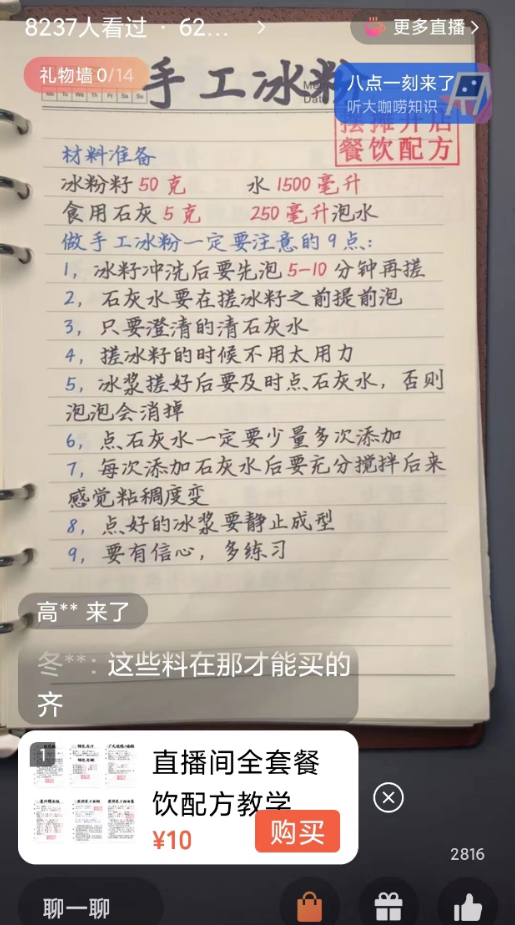 8237人看过 · 62... >
更多直播 >
礼物墙 0/14
手工冰粉
八点一刻来了
听大咖唠知识
摆摊开店
餐饮配方
材料准备
冰粉籽 50 克 水 1500 毫升
食用石灰 5 克 250 毫升泡水
做手工冰粉一定要注意的 9 点:
1, 冰籽冲洗后要先泡 5-10 分钟再搓
2, 石灰水要在搓冰籽之前提前泡
3, 只要澄清的清石灰水
4, 搓冰籽的时候不用太用力
5, 冰浆搓好后要及时点石灰水, 否则
泡泡会消掉
6, 点石灰水一定要少量多次添加
7, 每次添加石灰水后要充分搅拌后来
感觉粘稠度变
8, 点好的冰浆要静止成型
9, 要有信心, 多练习
高** 来了
冬**: 这些料在那才能买的
齐
1
直播间全套餐
饮配方教学
¥10
购买
2816
聊一聊